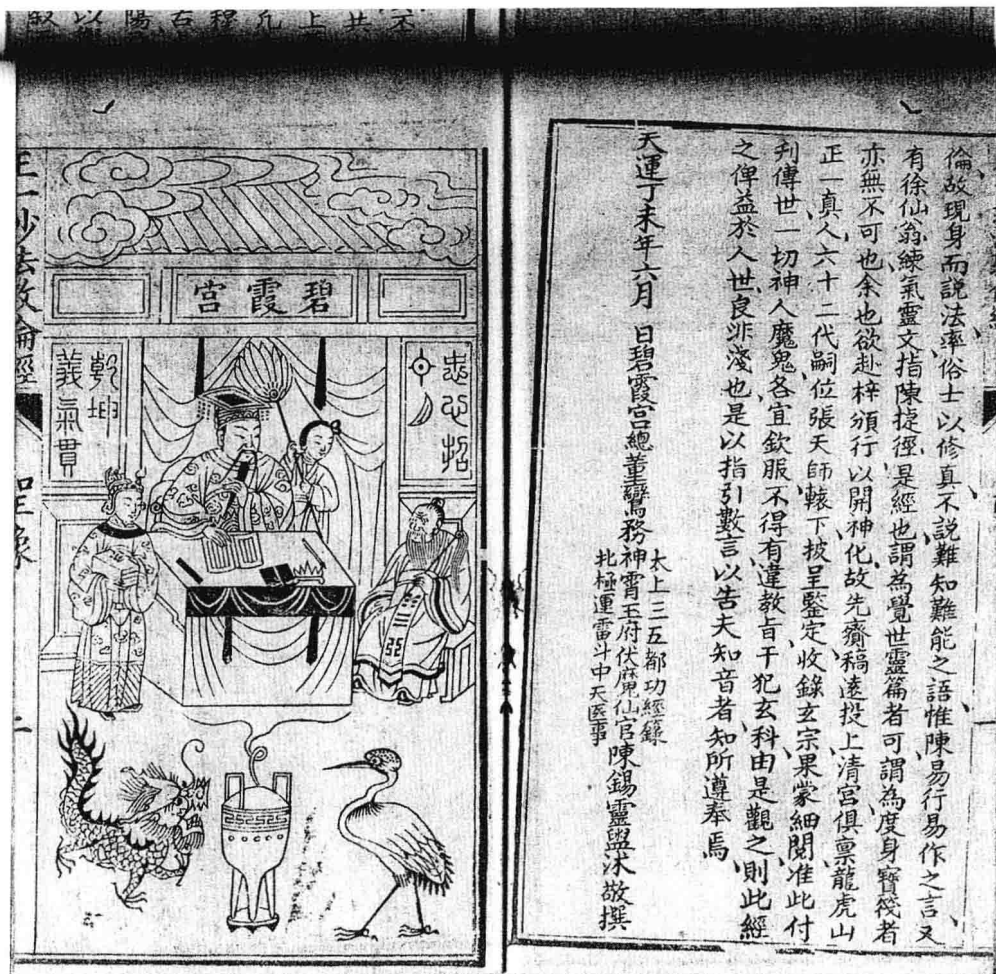 倫故現身而說法率俗士以修真不說難知難能之語惟陳易行易作之言又
有徐仙翁練氣靈文指陳捷徑是經也謂為覺世靈篇者可謂為度身寶筏者
亦無不可也余也欲赴梓頒行以開神化故先齎稿遠投上清宮俱稟龍虎山
正一真人六十二代嗣位張天師轅下披呈鑒定收錄玄宗果蒙細閱准此付
刋傳世一切神人魔鬼各宜欽服不得有違教旨干犯玄科由是觀之則此經
之俾益於人世良非淺也是以指引數言以告夫知音者知所遵奉焉
天運丁未年六月 日碧霞宮總董鸞務神霄玉府伏魔仙官陳錫靈盥沐敬撰
太上三五都功經籙
北極運雷斗中天醫事
碧霞宮
忠心昭
乾坤
義氣貫
正一妙法敦倫經
聖像
二